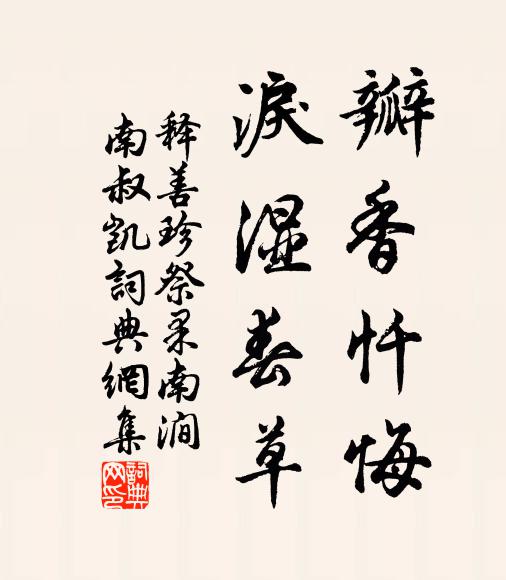 瓣香忏悔
淚湿春草
释善珍祭杲南涧
南叔凯詞典網集
詞典网印